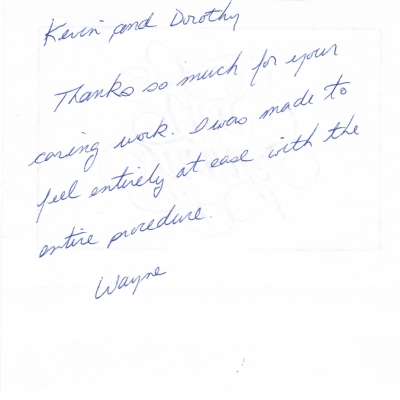 Kevin and Dorothy
Thanks so much for your
caring work. I was made to
feel entirely at ease with the
entire procedure.
Wayne